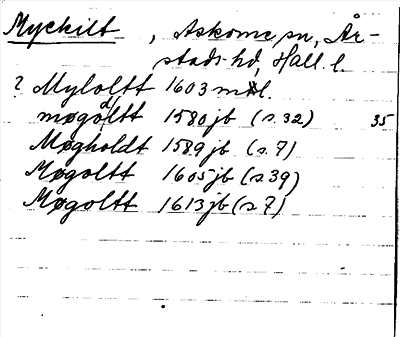 Myckilt, Askome sn, År-
stads hd, Hall. l.
? Myloltt 1603 mtl.
møgoldtt 1580 jb (s. 32) 35
Møgholdt 1589 jb (s. 7)
Møgoltt 1605 jb (s 39)
Møgoltt 1613 jb (s 7)